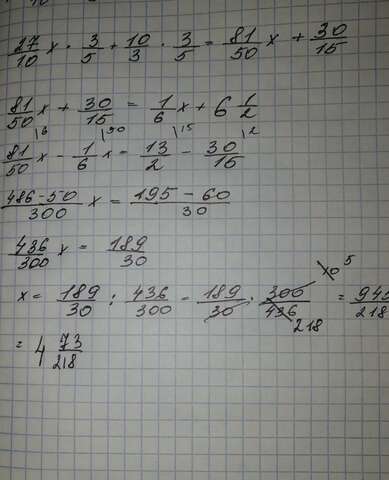 27/10 x · 3/5 + 10/3 · 3/5 = 81/50 x + 30/15
81/50 x + 30/15 = 1/6 x + 6 1/2
81/50 x \6 - 1/6 x \50 = 13/2 \15 - 30/15 \2
486-50/300 x = 195-60/30
436/300 x = 189/30
x = 189/30 : 436/300 = 189/30 · 300/436 10 5 218 = 945/218
= 4 73/218